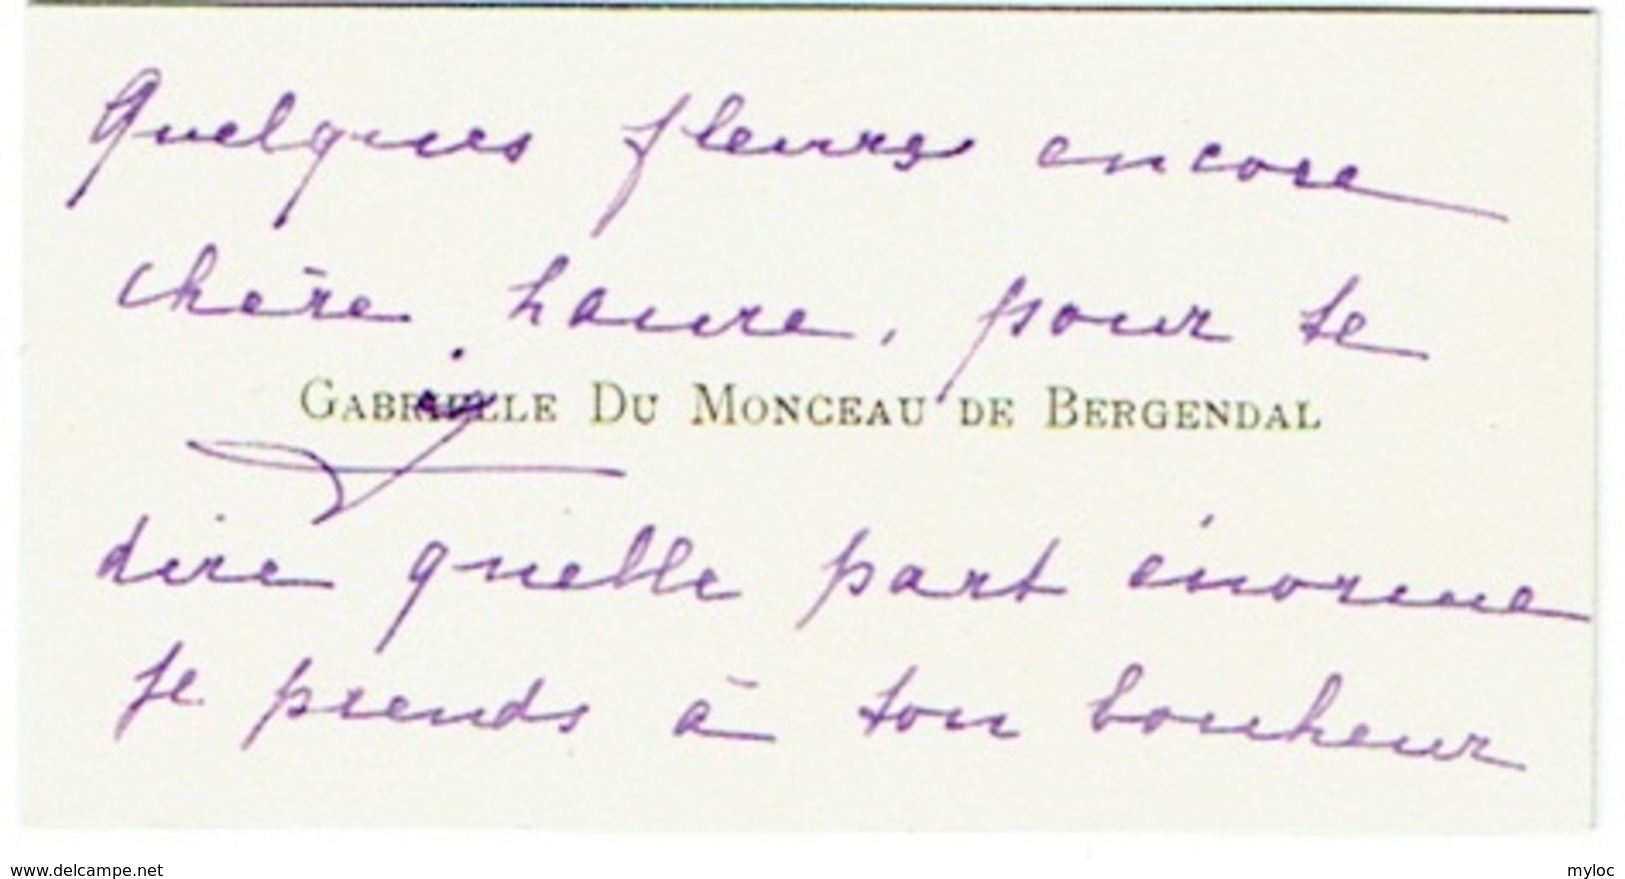 Quelques fleurs encore
chère Laure, pour te
GABRIELLE DU MONCEAU DE BERGENDAL
dire quelle part énorme
je prends à ton bonheur
www.delcampe.net
myloc